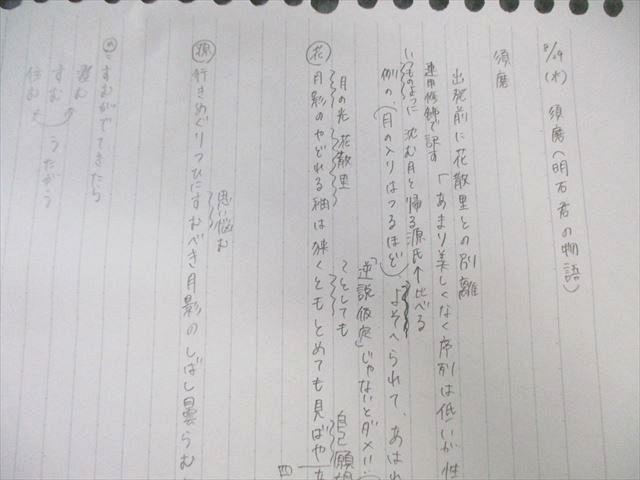 8/29(水) 須磨(明石君の物語)
須磨
出発前に花散里との別離
「あまり美しくなく序列は低いが性
連用修飾で訳す
いつものように 沈む月と帰る源氏を比べる
例の、(月の入りはつるほど)よそへられて、あはれ
「逆説仮定」じゃないとダメ!!
月の光 花散里 〜としても 自己願望
花 月影のやどれる袖は狭くともとめても見ばや
四
思い悩む
源 行きめぐりつひにすむべき月影のしばし曇らむ
すむがでてきたら
澄む
すむ
住む
うたがう